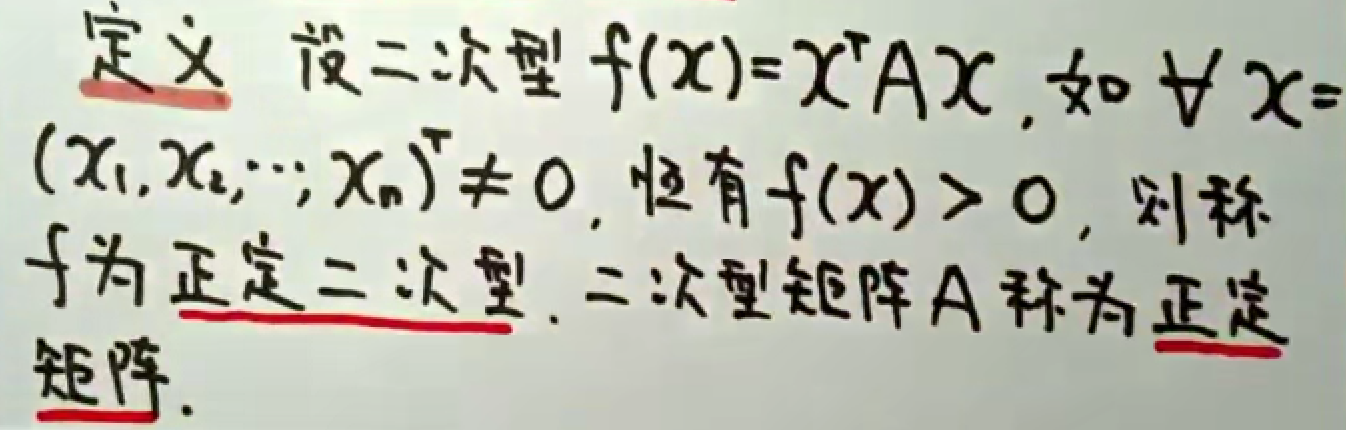 定义 设二次型 f(x)=xᵀAx,如 ∀ x=
(x₁,x₂,…,xₙ)ᵀ≠0,恒有f(x)>0,则称
f为正定二次型.二次型矩阵A称为正定
矩阵.